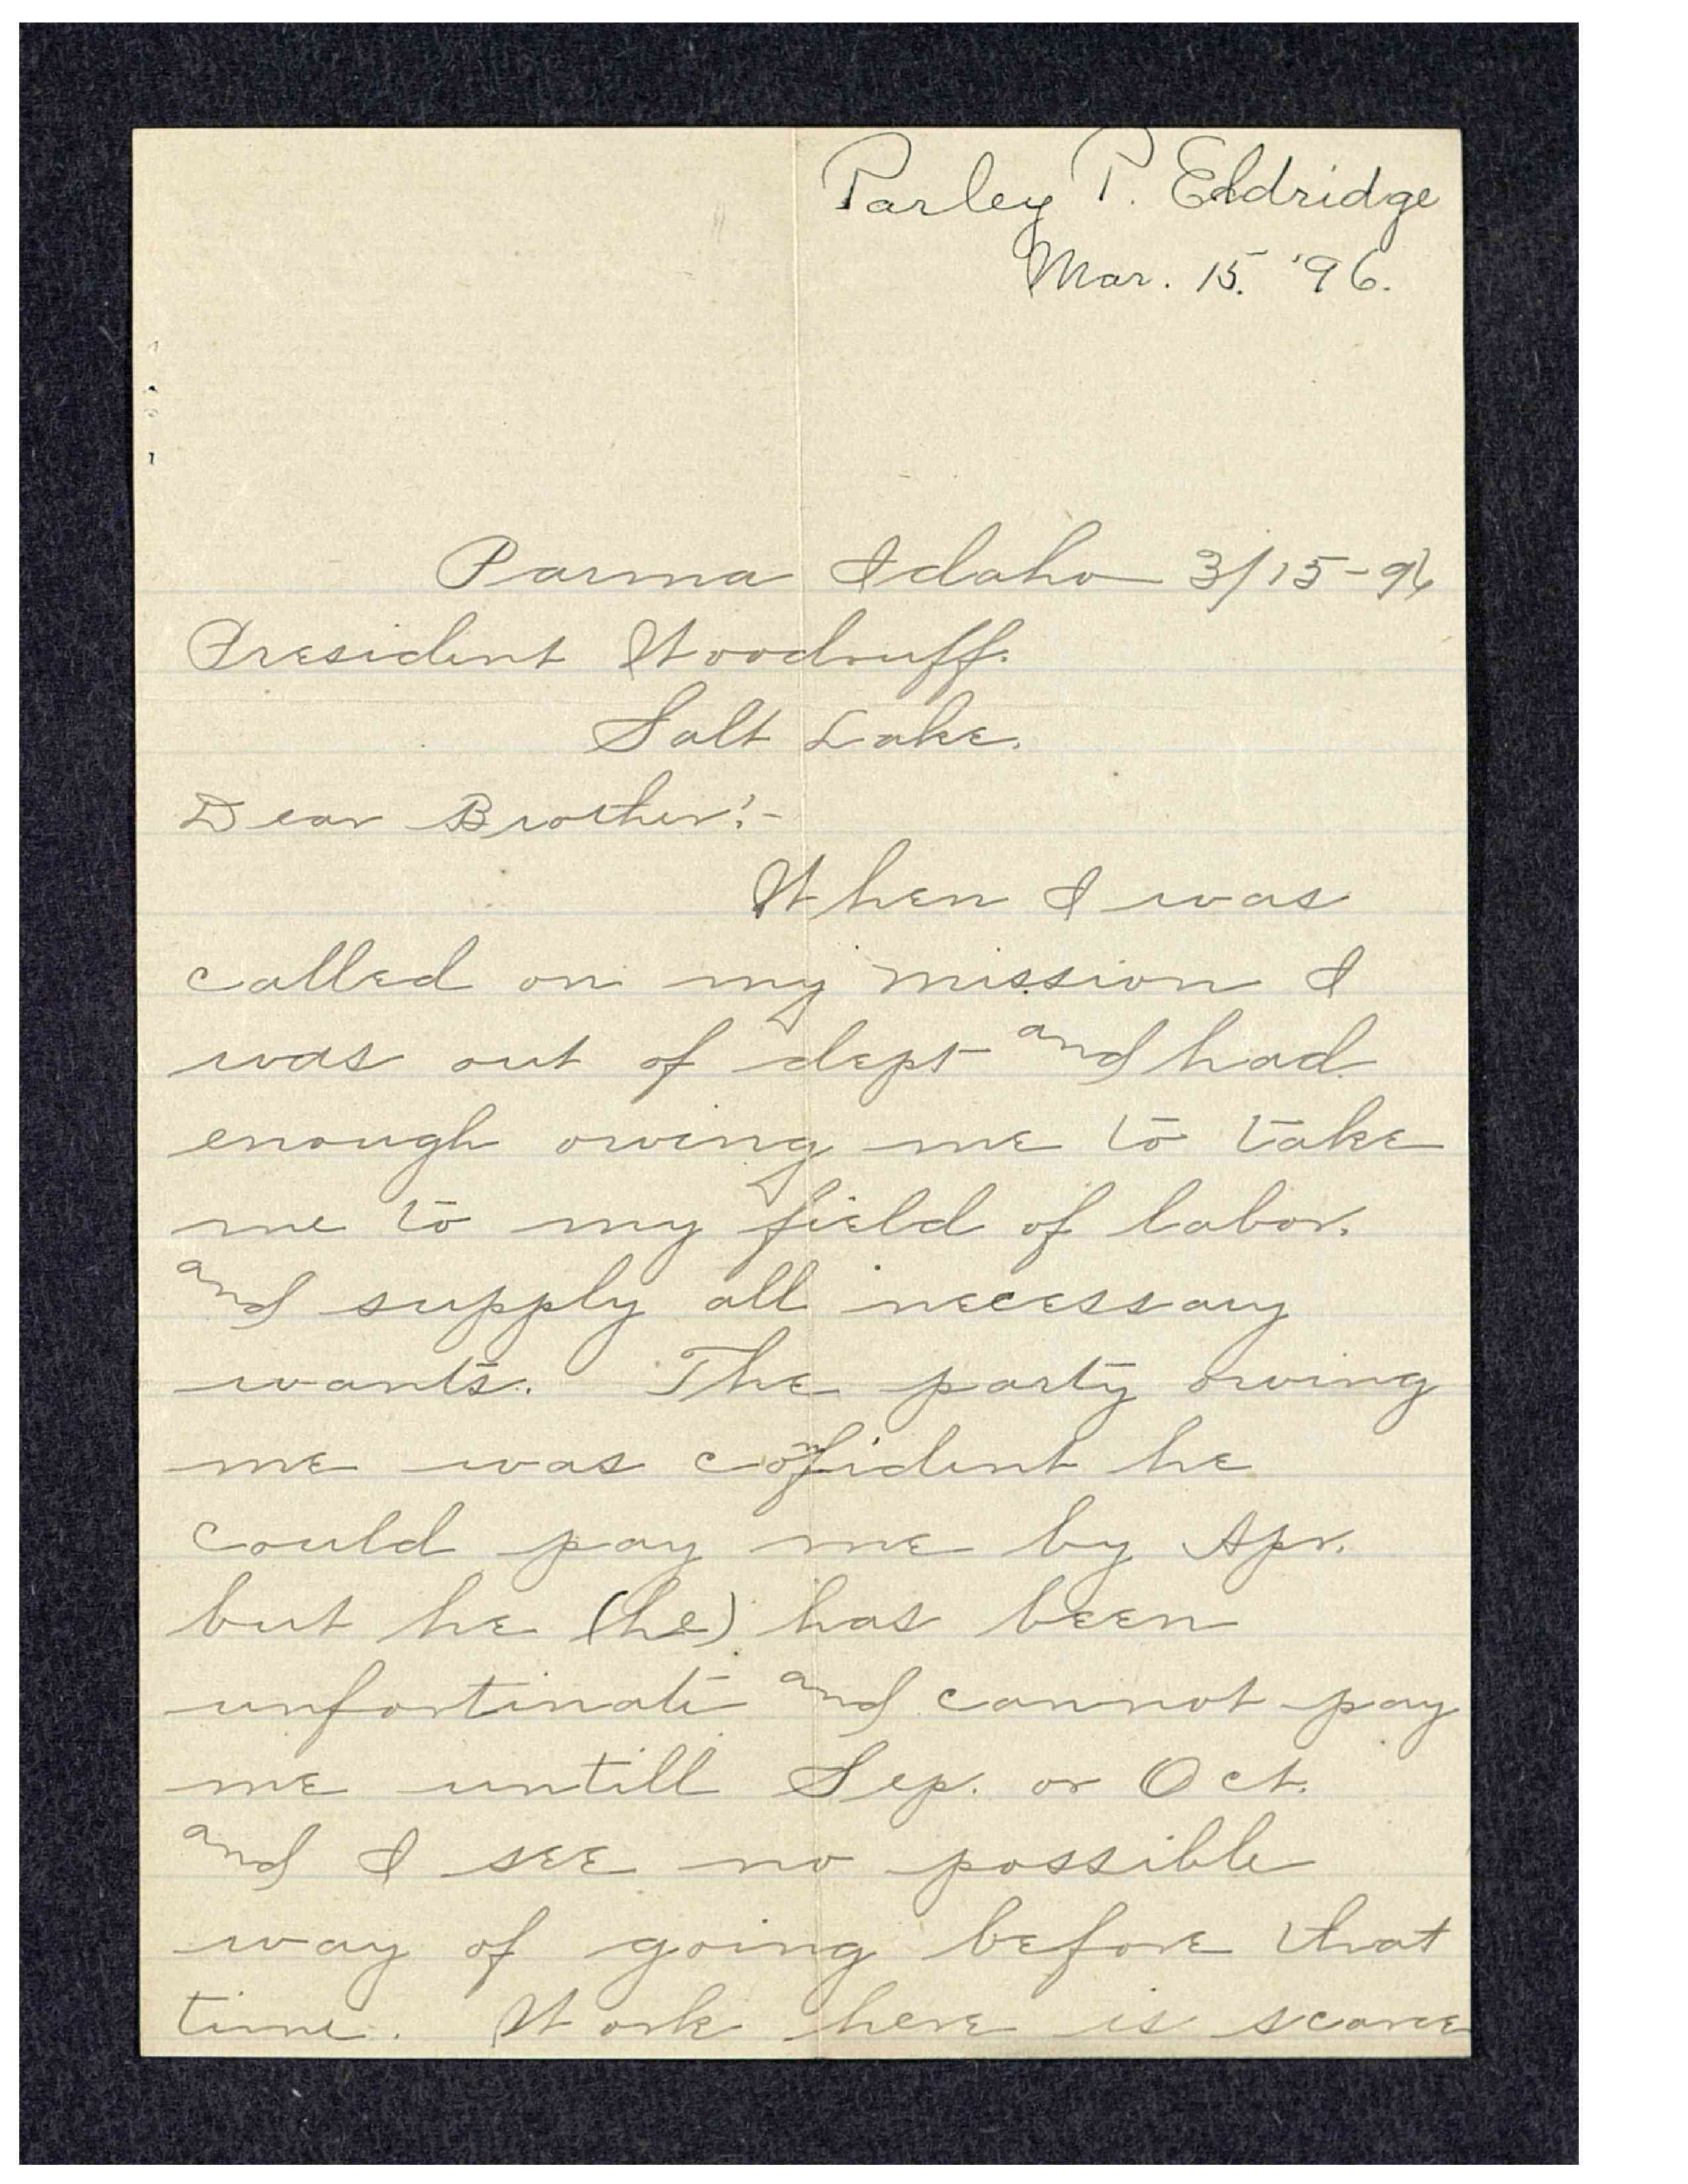 Parley P. Eldridge
Mar. 15. '96.
Parma Idaho 3/15-96
President Woodruff.
Salt Lake.
Dear Brother:-
When I was
called on my mission I
was out of dept and had
enough owing me to take
me to my field of labor.
and supply all necessary
wants. The party owing
me was confident he
could pay me by Apr.
but he (he) has been
unfortinate and cannot pay
me untill Sep. or Oct.
and I see no possible
way of going before that
time. Work here is scarce